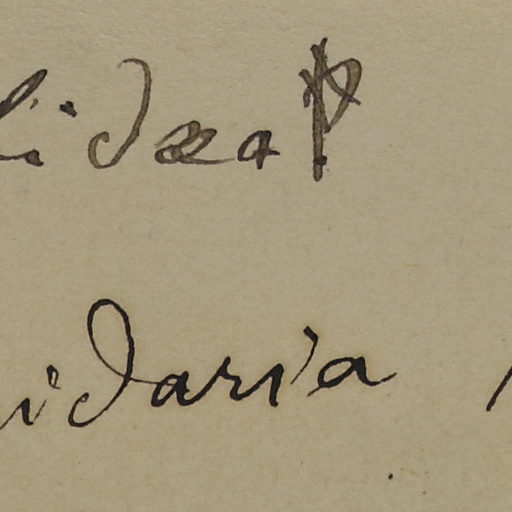 lidæa?
idaria